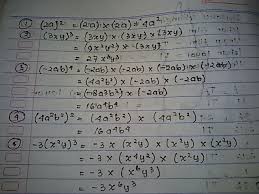 ① (2a)² = (2a) × (2a) = 4a²
② (3xy)³ = (3xy) × (3xy) × (3xy)
= (9x²y²) × (3xy)
= 27x³y³
③ (-2ab)⁴ = (-2ab) × (-2ab) × (-2ab) × (-2ab)
= (4a²b²) × (-2ab) × (-2ab)
= (-8a3b3) × (-2ab)
= 16a⁴b⁴
④ (4a²b²)² = (4a²b²) × (4a²b²)
= 16a⁴b⁴
⑤ -3(x²y)³ = -3 × (x²y) × (x²y) × (x²y)
= -3 × (x⁴y²) × (x²y)
= -3 × (x⁶y³)
= -3x⁶y³